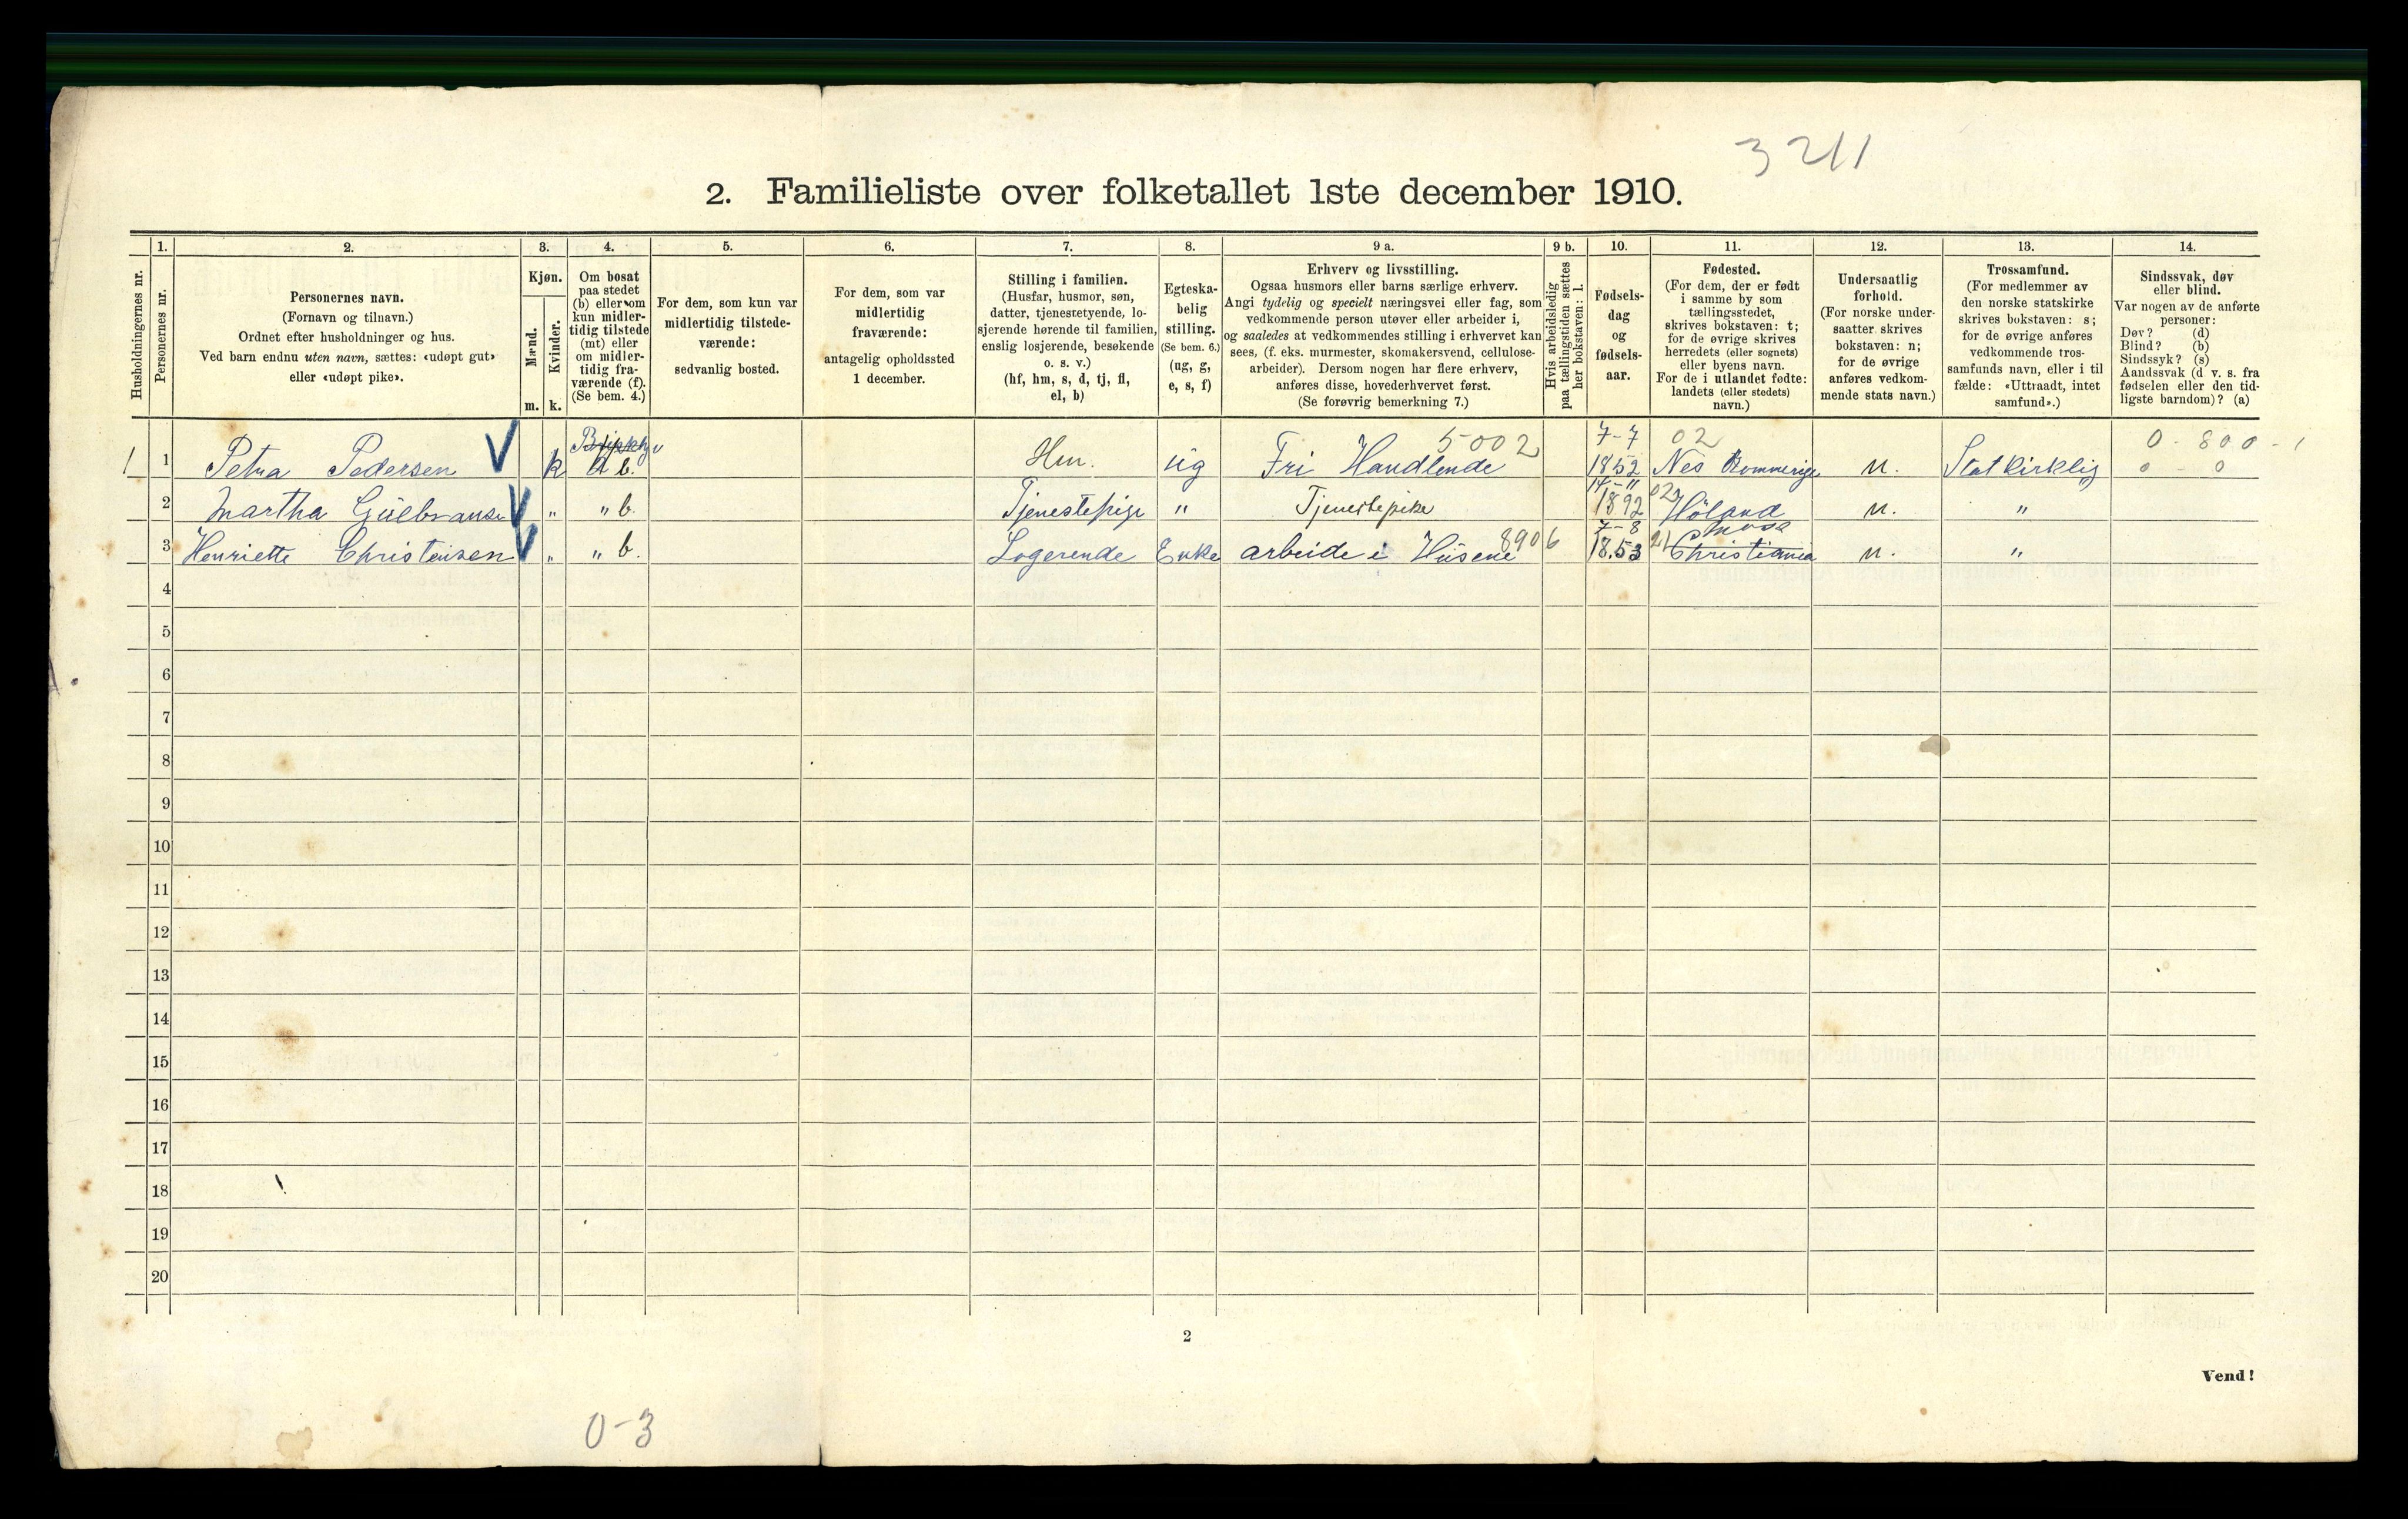 3211
2. Familieliste over folketallet 1ste december 1910.
Husholdningernes nr.
1.
Personernes nr.
2.
Personernes navn.
(Fornavn og tilnavn.)
Ordnet efter husholdninger og hus.
Ved barn endnu uten navn, sættes: «udøpt gut»
eller «udøpt pike».
3.
Kjøn.
Mænd.
Kvinder.
m. k.
4.
Om bosat
paa stedet
(b) eller om
kun midler-
tidig tilstede
(mt) eller
om midler-
tidig fra-
værende (f).
(Se bem. 4.)
5.
For dem, som kun var
midlertidig tilstede-
værende:
sedvanlig bosted.
6.
For dem, som var
midlertidig
fraværende:
antagelig opholdssted
1 december.
7.
Stilling i familien.
(Husfar, husmor, søn,
datter, tjenestetyende, lo-
sjerende hørende til familien,
enslig losjerende, besøkende
o. s. v.)
(hf, hm, s, d, tj, fl,
el, b)
8.
Egteska-
belig
stilling.
(Se bem. 6.)
(ug, g,
e, s, f)
9 a.
Erhverv og livsstilling.
Ogsaa husmors eller barns særlige erhverv.
Angi tydelig og specielt næringsvei eller fag, som
vedkommende person utøver eller arbeider i,
og saaledes at vedkommendes stilling i erhvervet kan
sees, (f. eks. murmester, skomakersvend, cellulose-
arbeider). Dersom nogen har flere erhverv,
anføres disse, hovederhvervet først.
(Se forøvrig bemerkning 7.)
9 b.
Hvis arbeidsledig
paa tællingstiden sættes
her bokstaven: l.
10.
Fødsels-
dag
og
fødsels-
aar.
11.
Fødested.
(For dem, der er født
i samme by som
tællingsstedet,
skrives bokstaven: t;
for de øvrige skrives
herredets (eller sognets)
eller byens navn.
For de i utlandet fødte:
landets (eller stedets)
navn.)
12.
Undersaatlig
forhold.
(For norske under-
saatter skrives
bokstaven: n;
for de øvrige
anføres vedkom-
mende stats navn.)
13.
Trossamfund.
(For medlemmer av
den norske statskirke
skrives bokstaven: s;
for de øvrige anføres
vedkommende tros-
samfunds navn, eller i til
fælde: «Uttraadt, intet
samfund».)
14.
Sindssvak, døv
eller blind.
Var nogen av de anførte
personer:
Døv? (d)
Blind? (b)
Sindssyk? (s)
Aandssvak (d v. s. fra
fødselen eller den tid-
ligste barndom)? (a)
5002 7-7 02 0-800-1
1 1 Petra Pedersen k b. Hm. ug Fri Handlende 1852 Nes Rommerige n. Statkirklig 0-0
2 Martha Gulbranse „ „ b. Tjenestepige „ Tjenestepike 1892 02 Höland n. „
7-8
3 Henriette Christensen „ „ b. Logerende Enke arbeide i Husene 8906 1853 21 Christiania n. „
4
5
6
7
8
9
10
11
12
13
14
15
16
17
18
19
20
2
Vend!
0-3